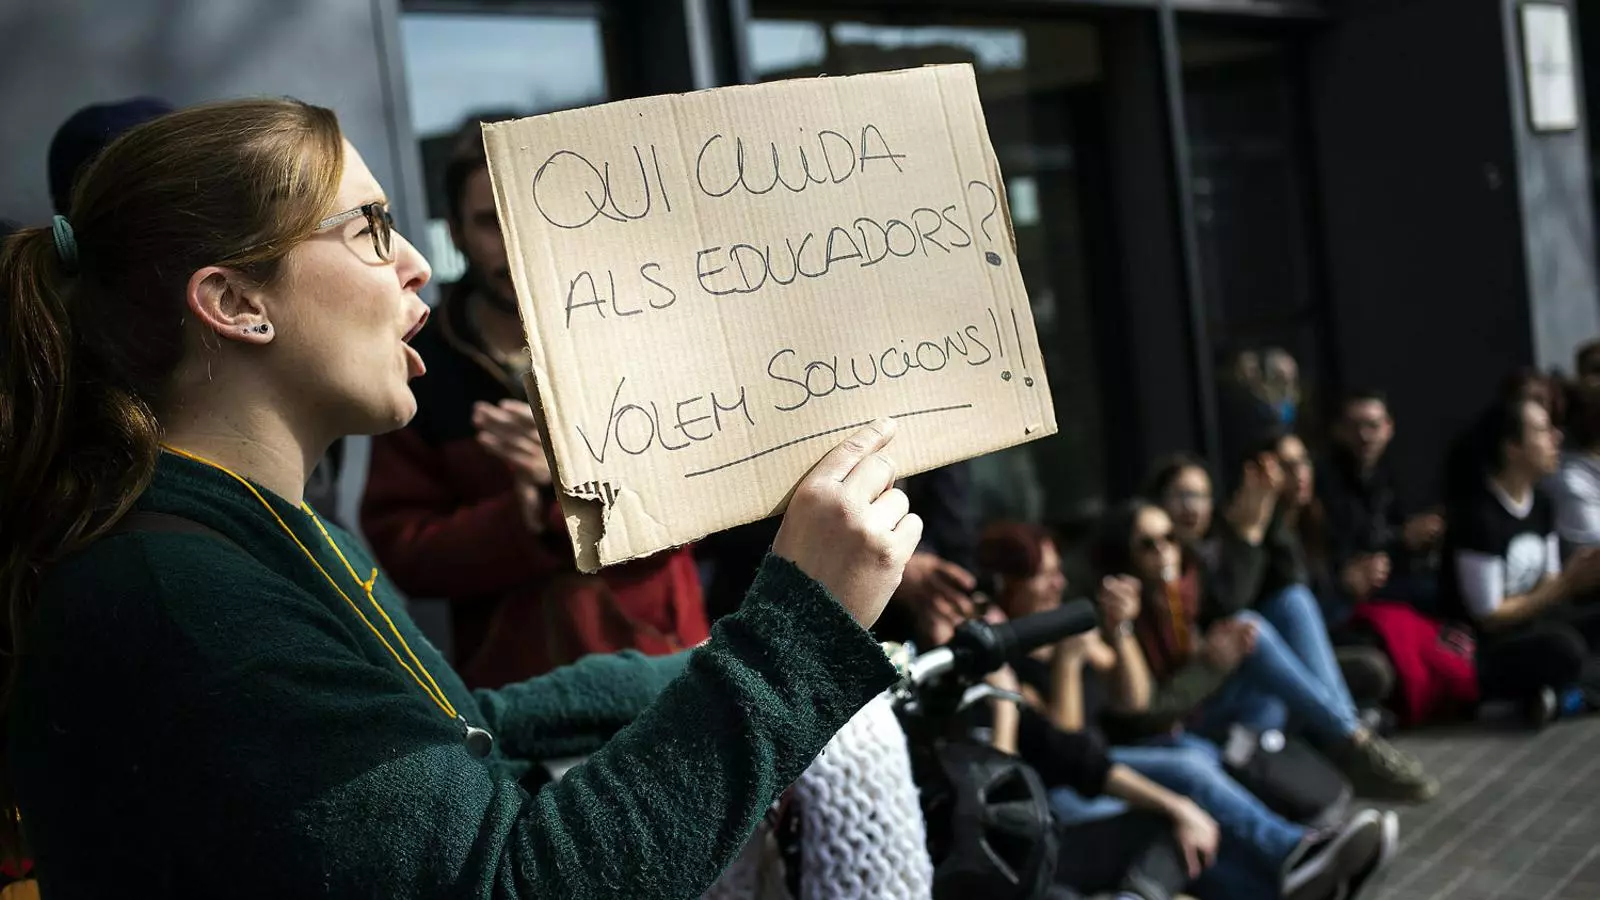 QUI CUIDA
ALS EDUCADORS?
VOLEM SOLUCIONS!!